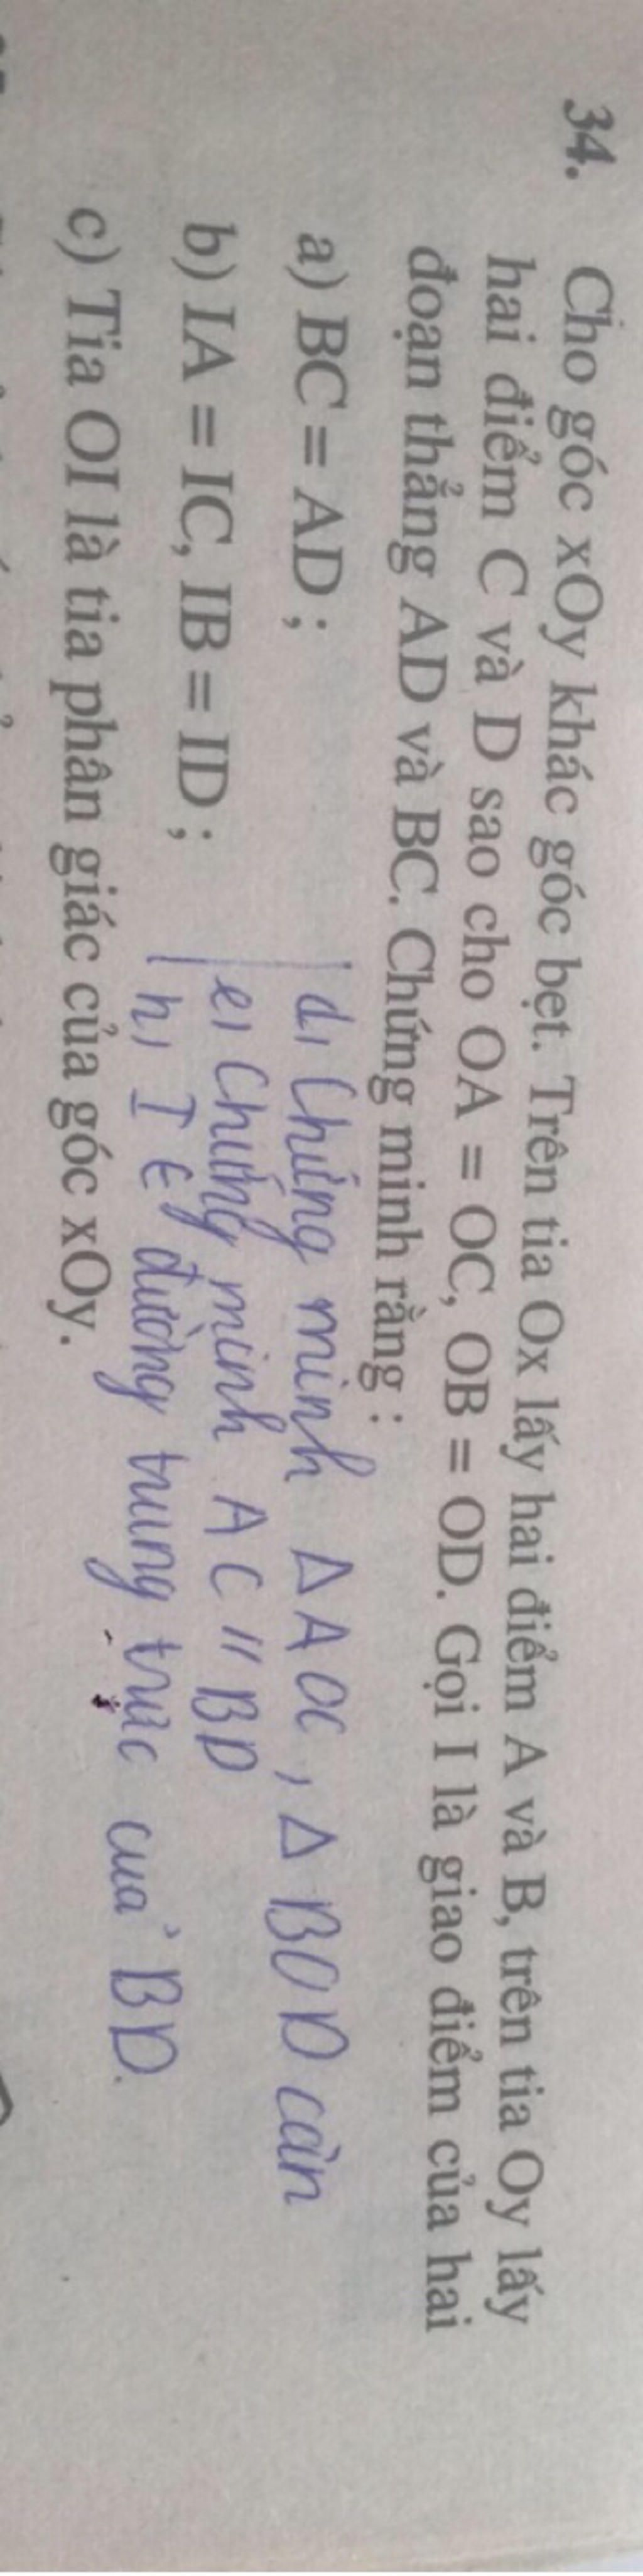 34. Cho góc xOy khác góc bẹt. Trên tia Ox lấy hai điểm A và B, trên tia Oy lấy
hai điểm C và D sao cho OA = OC, OB = OD. Gọi I là giao điểm của hai
đoạn thẳng AD và BC. Chứng minh rằng :
a) BC = AD ;
d, Chứng minh Δ AOC, Δ BOD cân
b) IA = IC, IB = ID ;
e, Chứng minh AC // BD
h, I ∈ đường trung trực của BD.
c) Tia OI là tia phân giác của góc xOy.